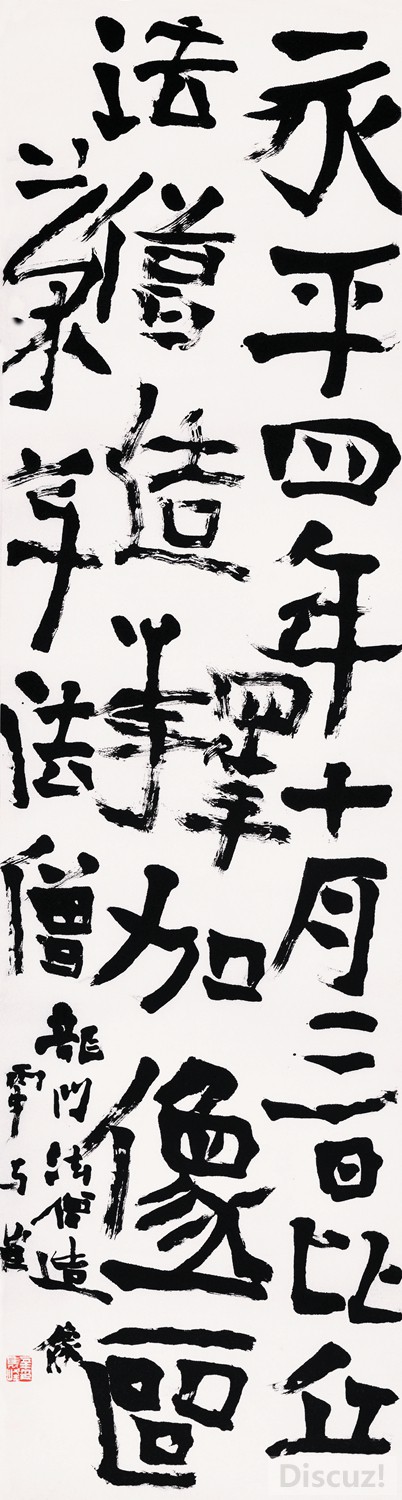 永平四年十月三日比丘
法僧造釋加像一區
法僧
龍門法僧造像
Discuz!